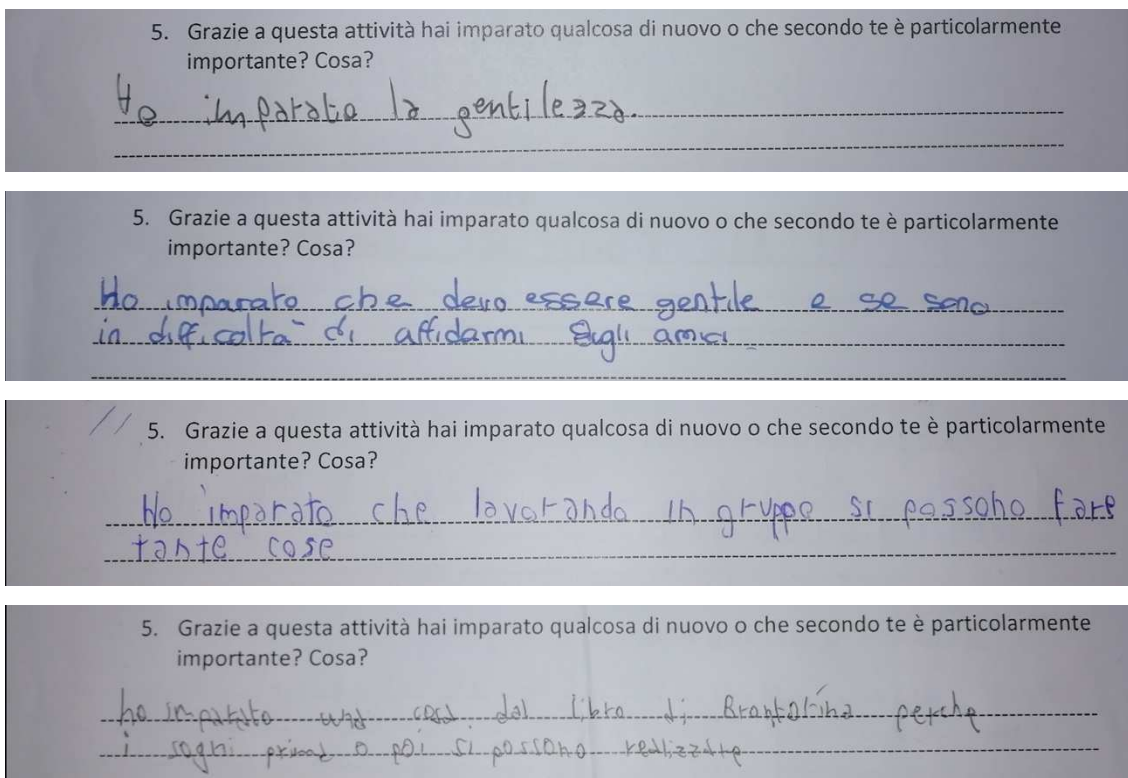 5. Grazie a questa attività hai imparato qualcosa di nuovo o che secondo te è particolarmente
importante? Cosa?
Ho imparato la gentilezza.
5. Grazie a questa attività hai imparato qualcosa di nuovo o che secondo te è particolarmente
importante? Cosa?
Ho imparato che devo essere gentile e se sono
in difficoltà di affidarmi agli amici
5. Grazie a questa attività hai imparato qualcosa di nuovo o che secondo te è particolarmente
importante? Cosa?
Ho imparato che lavorando in gruppo si possono fare
tante cose
5. Grazie a questa attività hai imparato qualcosa di nuovo o che secondo te è particolarmente
importante? Cosa?
ho imparato una cosa dal libro di Brontolina perche
i sogni prima o poi si possono realizzare